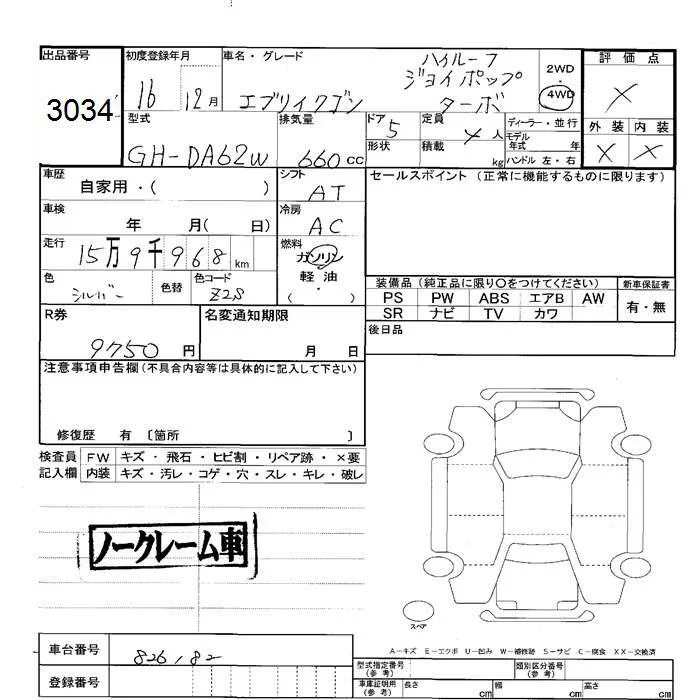 出品番号
3034
初度登録年月
16 12月
車名・グレード
エブリイワゴン
ハイルーフ
ジョイポップ
ターボ
2WD
4WD
評価点
×
外装 内装
× ×
型式
GH-DA62W
排気量
660 cc
ドア 5
形状
定員 4 人
積載 kg
ディーラー・並行
モデル
年式 年
ハンドル 左・右
車歴
自家用・( )
シフト
AT
セールスポイント (正常に機能するものに限ります)
車検
年 月( 日)
冷房
AC
走行
15万9千968 km
燃料
ガソリン
軽油
・
( )
色
シルバー
色替
色コード
Z2S
装備品 (純正品に限り○をつけてください)
PS PW ABS エアB AW
SR ナビ TV カワ
新車保証書
有・無
R券
9750 円
名変通知期限
月 日
後日品
注意事項申告欄 (不具合内容等は具体的に記入して下さい)
修復歴 有 〔箇所 〕
検査員 FW キズ・飛石・ヒビ割・リペア跡・×要
記入欄 内装 キズ・汚レ・コゲ・穴・スレ・キレ・破レ
ノークレーム車
スペア
A-キズ E-エクボ U-凹み W-補修跡 S-サビ C-腐食 XX-交換済
車台番号
826182
登録番号
型式指定番号
(参考)
類別区分番号
(参考)
車庫証明用
(参考)
長さ cm 幅 cm 高さ cm